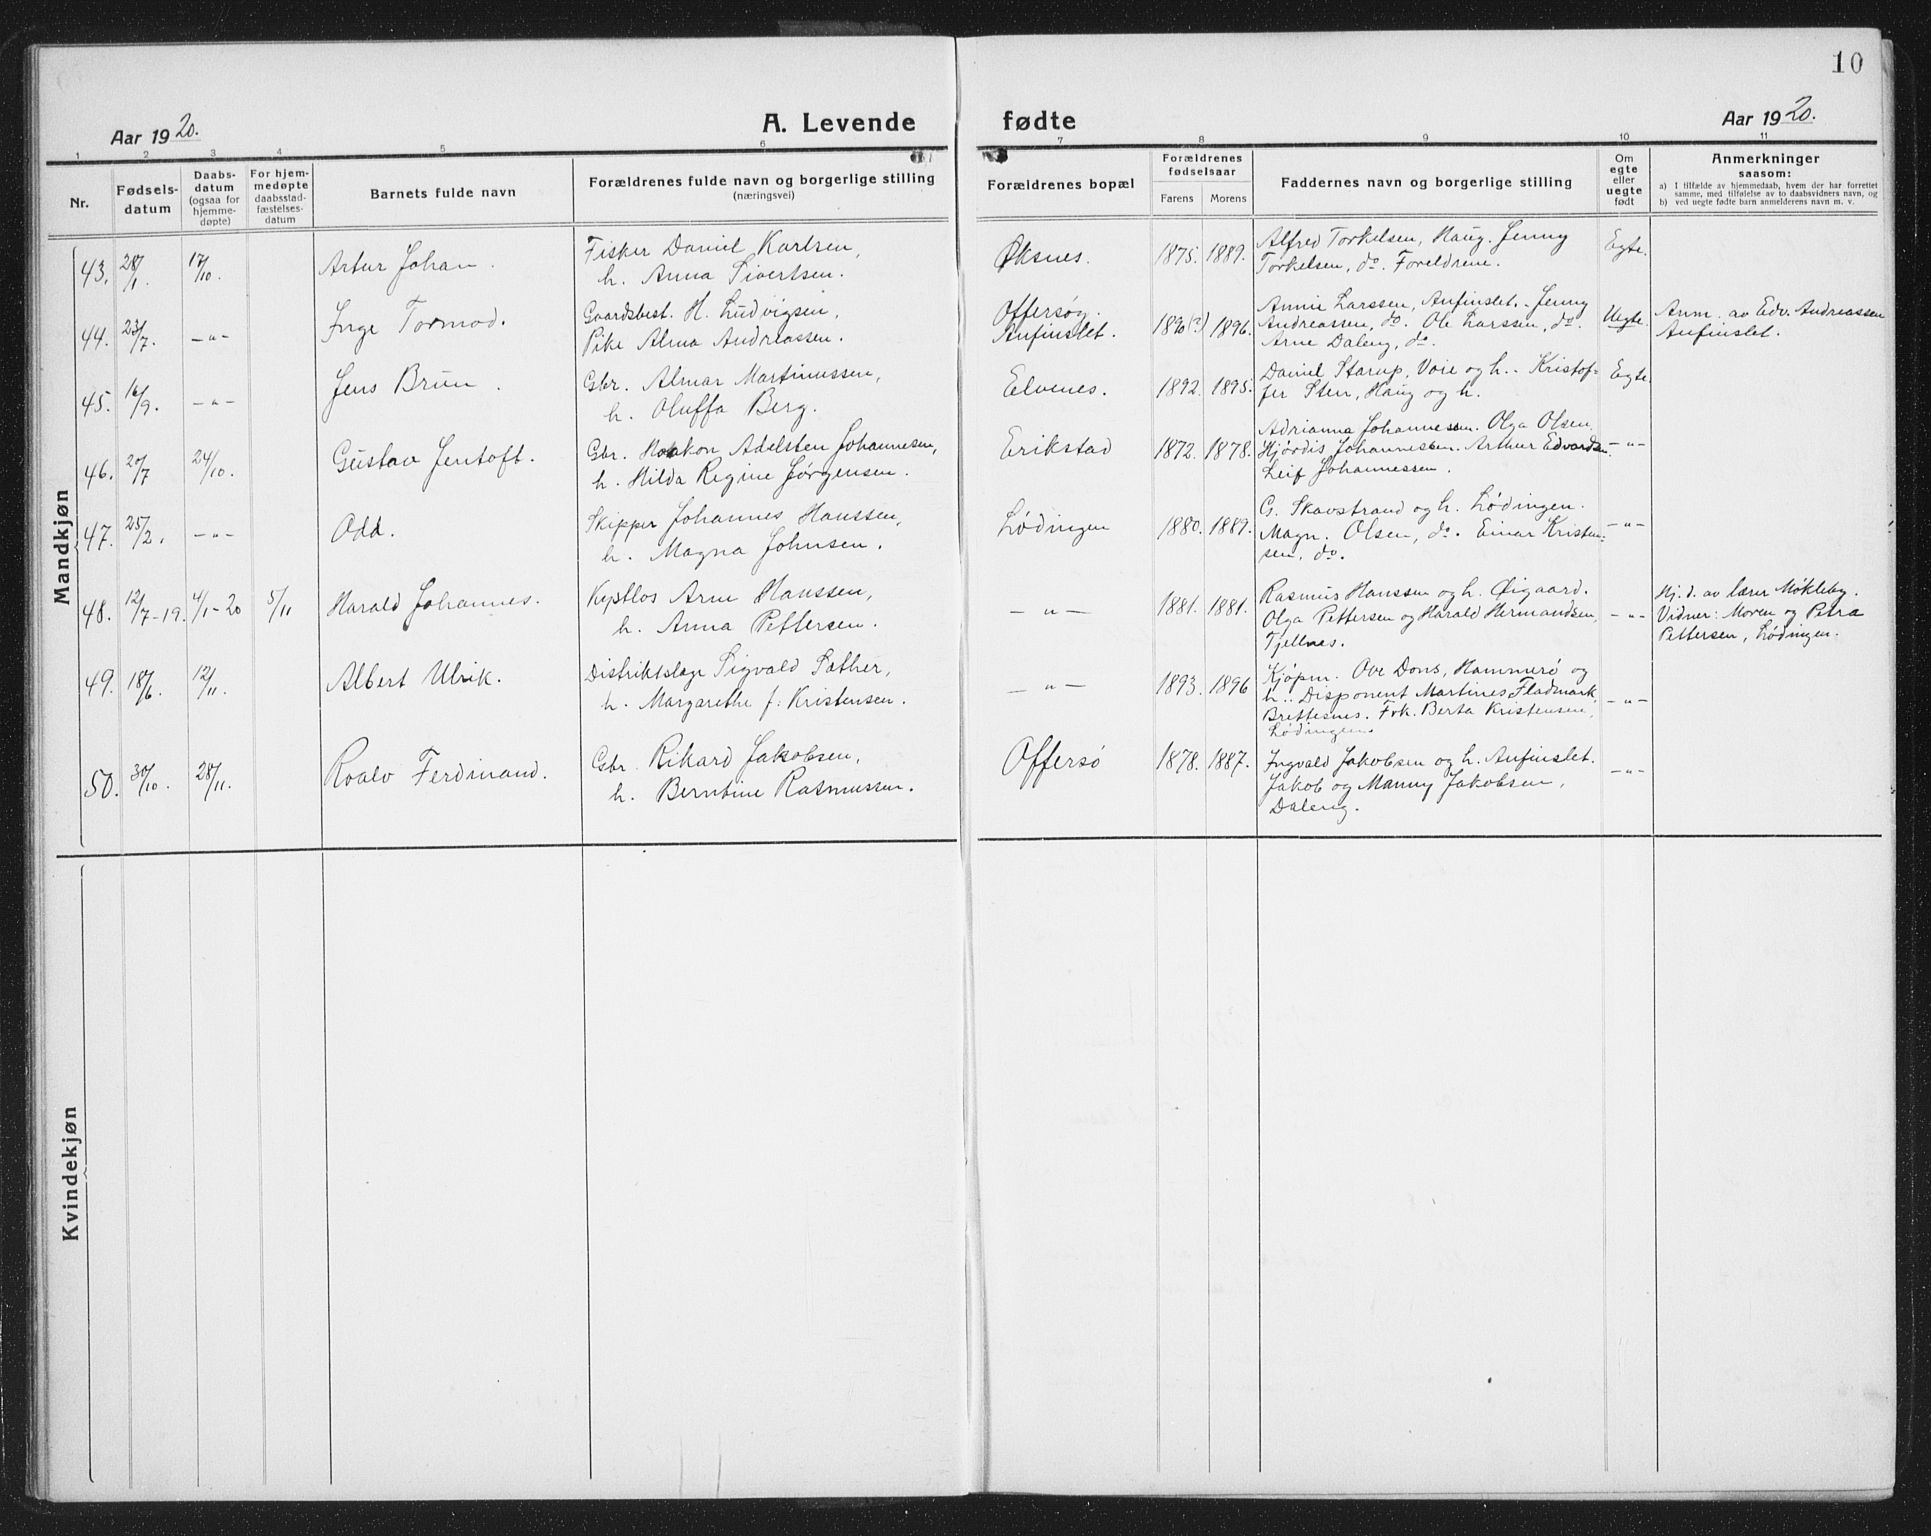 10
Aar 1920.
A. Levende
fødte
Aar 1920.
1 2 3 4 5 6 7 8 9 10 11
Nr.
Fødsels-
datum
Daabs-
datum
(ogsaa for
hjemme-
døpte)
For hjem-
medøpte
daabsstad-
fæstelses-
datum
Barnets fulde navn
Forældrenes fulde navn og borgerlige stilling
(næringsvei)
Forældrenes bopæl
Forældrenes
fødselsaar
Farens Morens
Faddernes navn og borgerlige stilling
Om
egte
eller
uegte
født
Anmerkninger
saasom:
a) I tilfælde av hjemmedaab, hvem der har forrettet
samme, med tilføielse av to daabsvidners navn, og
b) ved uegte fødte barn anmelderens navn m. v.
Mandkjøn
43. 28/1 17/10 Artur Johan.
Fisker Daniel Karlsen,
h. Anna Sivertsen.
Øksnes. 1875. 1889.
Alfred Torkelsen, Haug. Jenny
Torkelsen, do. Foreldrene.
Egte.
44. 23/7. -"- Inge Tormod.
Gaardsbest. H. Ludvigsen,
Pike Alma Andreassen.
Offersøy.
Anfinslet.
1890(?) 1896.
Annie Larssen, Anfinslet. Jenny
Andreassen, do. Ole Larssen, do.
Arne Daleng, do.
Uegte.
Anm. av Edv. Andreassen
Anfinslet.
45. 16/9. -"- Jens Brun.
Gbr. Almar Martinussen,
h. Oluffa Berg.
Elvenes. 1892. 1895.
Daniel Starup, Voie og h. Kristof-
fer Sten, Haug og h.
Egte
46. 20/7 24/10. Gustav Jentoft.
Gbr. Haakon Adelsten Johannesen,
h. Hilda Regine Jørgensen.
Erikstad 1872. 1878.
Adrianna Johannessen. Olga Olsen,
Hjørdis Johannessen. Arthur Edvardsen.
Leif Johannessen.
-"-
47. 25/2. -"- Odd.
Skipper Johannes Hanssen,
h. Magna Johnsen.
Lødingen 1880. 1889.
G. Skavstrand og h. Lødingen.
Magn. Olsen, do. Einar Kristen-
sen, do.
-"-
48. 12/7-19. 4/1-20 5/11 Harald Johannes.
Kystlos Arne Hanssen,
h. Anna Pettersen.
-"- 1881. 1881.
Rasmus Hanssen og h. Øigaard.
Olga Pettersen og Harald Hermandsen,
Tjellnes.
-"-
Hj. d. av lærer Møkleby.
Vidner: Moren og Petra
Pettersen, Lødingen.
49. 18/6. 12/11. Albert Ulrik.
Distriktslæge Sigvald Sæther,
h. Margarethe f. Kristensen.
-"- 1893. 1896
Kjøpm. Ove Dons, Hammerø og
h. Disponent Martines Fladmark
Brettesnes. Frk. Berta Kristensen,
Lødingen.
-"-
50. 30/10. 28/11. Roalv Ferdinand.
Gbr. Rikard Jakobsen,
h. Berntine Rasmussen.
Offersø 1878. 1887.
Ingvald Jakobsen og h. Anfinslet.
Jakob og Manny Jakobsen,
Daleng.
-"-
Kvindekjøn